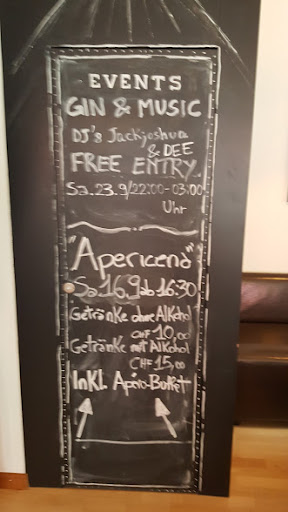 EVENTS
GIN & MUSIC
DJ's Jackjoshua
& DEE
FREE ENTRY
Sa. 23.9/22:00-03:00
Uhr
"Apericena"
Sa 16.9 ab 16:30
Getränke ohne Alkohol
CHF 10,00
Getränke mit Alkohol
CHF 15,00
Inkl. Apéro-Buffet